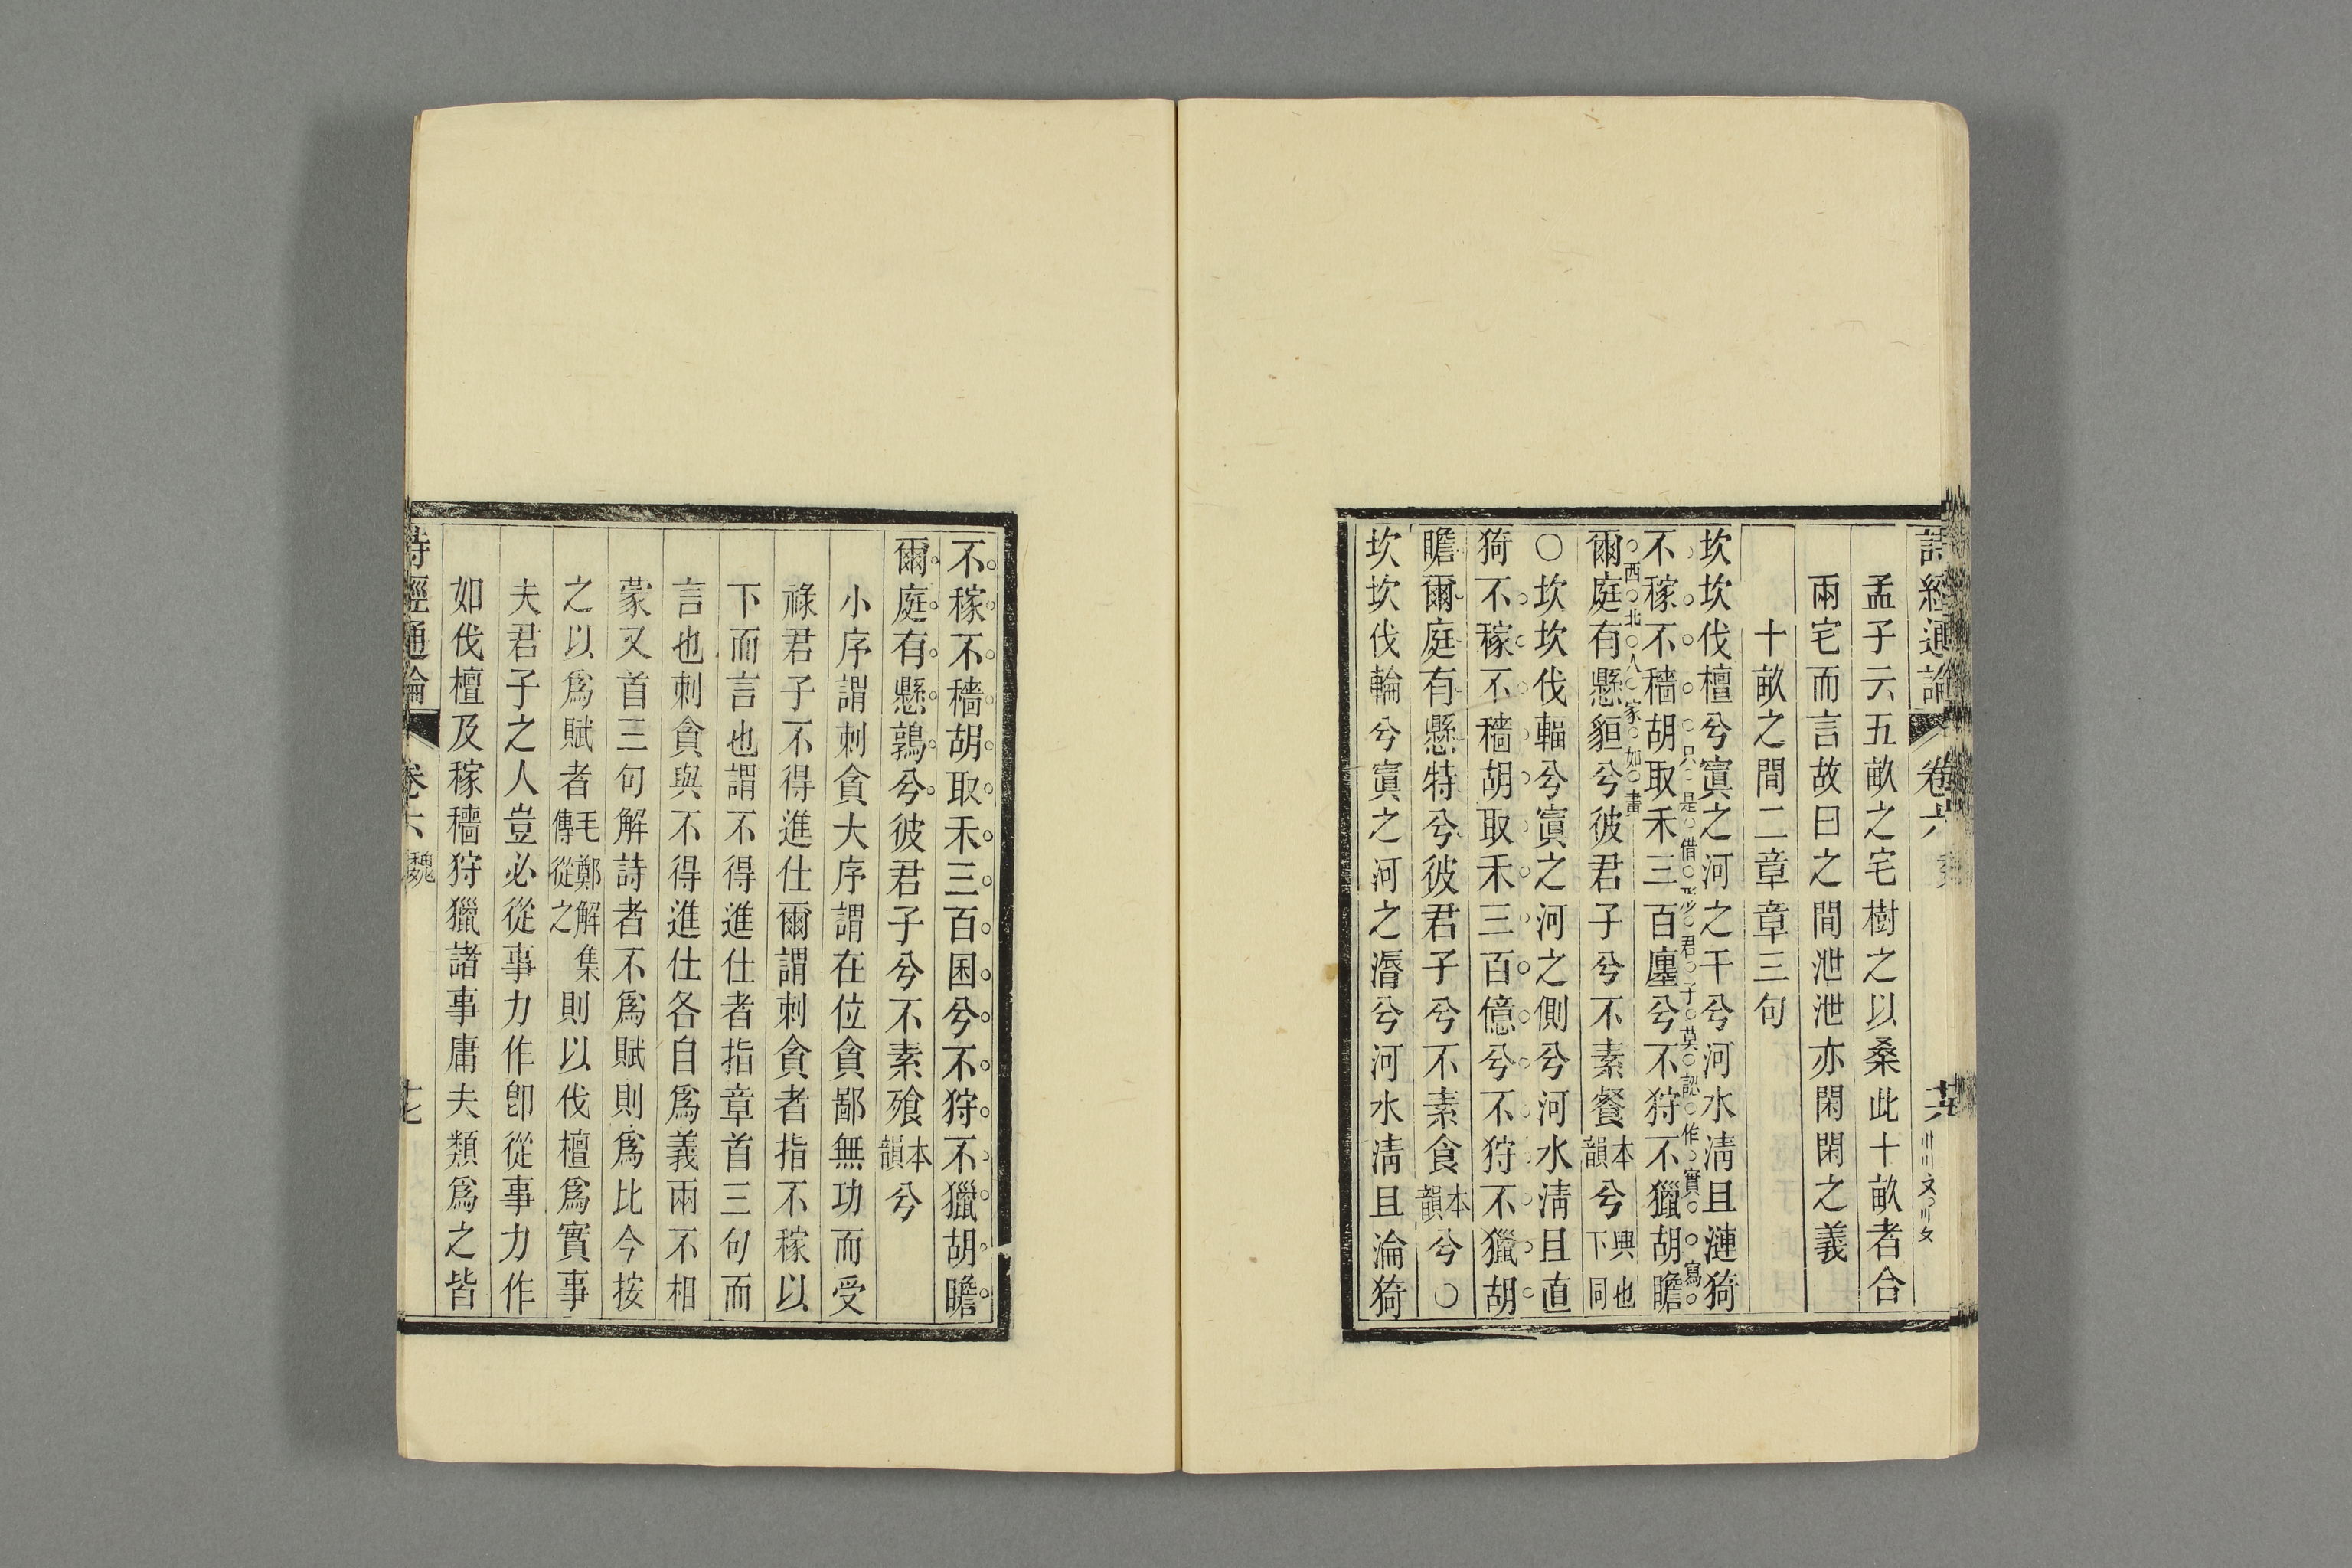 詩經通論 卷六
孟子云五畝之宅樹之以桑此十畝者合
兩宅而言故曰之間泄泄亦閑閑之義
十畝之間二章章三句
坎坎伐檀兮寘之河之干兮河水清且漣猗
只是借形君子莫認作實寫
不稼不穡胡取禾三百廛兮不狩不獵胡瞻
西北人家如畫
爾庭有懸貆兮彼君子兮不素餐本韻兮興也下同
○坎坎伐輻兮寘之河之側兮河水清且直
猗不稼不穡胡取禾三百億兮不狩不獵胡
瞻爾庭有懸特兮彼君子兮不素食本韻兮○
坎坎伐輪兮寘之河之漘兮河水清且淪猗
不稼不穡胡取禾三百囷兮不狩不獵胡瞻
爾庭有懸鶉兮彼君子兮不素飱本韻兮
小序謂刺貪大序謂在位貪鄙無功而受
祿君子不得進仕爾謂刺貪者指不稼以
下而言也謂不得進仕者指章首三句而
言也刺貪與不得進仕各自爲義兩不相
蒙又首三句解詩者不爲賦則爲比今按
之以爲賦者毛鄭解集傳從之則以伐檀爲實事
夫君子之人豈必從事力作卽從事力作
如伐檀及稼穡狩獵諸事庸夫類爲之皆
詩經通論 卷六 魏 十七